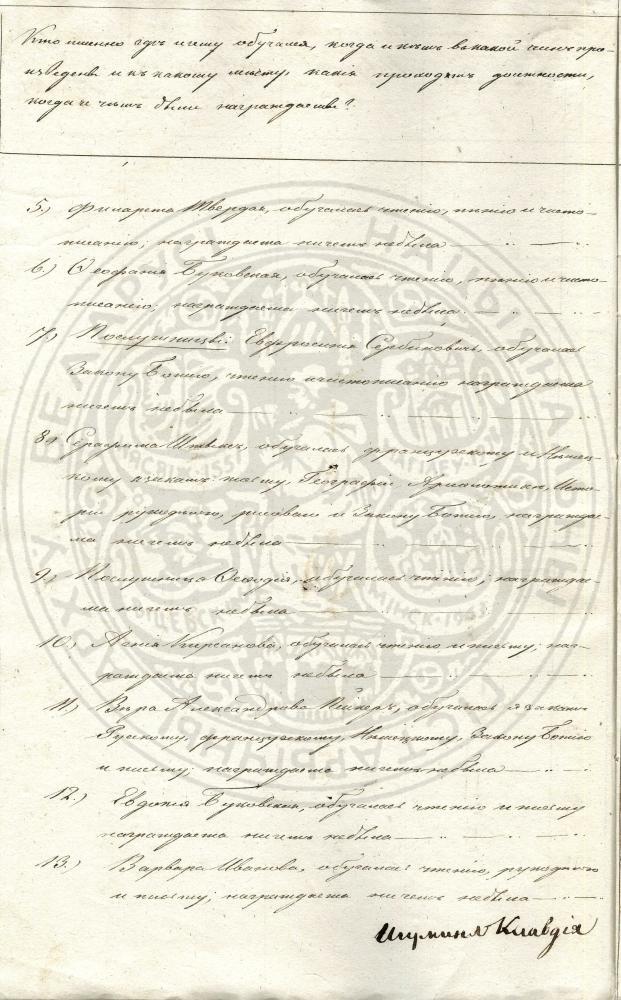 Кто именно гдѣ и чему обучался, когда и кѣмъ в какой чинъ про-
изведенъ и къ какому мѣсту, какія проходятъ должности,
когда и чѣмъ были награждаемы?
5.) Филарета Твердая, обучалась чтенію, пѣнію и чисто-
писанію; награждаема ничемъ небыла
6.) Ѳеофанія Буковская, обучалась чтенію, пѣнію и чисто-
писанію; награждаема ничемъ небыла
7.) Послушницы: Евфросинія Сербиновичъ, обучалась
Закону Божію, чтенію и чистописанію награждаема
ничемъ небыла
8.) Серафима обучалась французскому и Нѣмец-
кому языкамъ письму, Географіи Ариѳметики, Исто-
ріи рукодѣлію, рисовало и Закону Божію, награждае-
ма ничемъ небыла
9.) Послушница обучалась чтенію; награждае-
ма ничемъ небыла
10.) Агнія Кирсанова, обучалась чтенію и письму; наг-
раждаема ничемъ небыла
11.) Вѣра Александрова обучалась языкамъ
Рускому, французскому, Нѣмецкому, Закону Божію
и письму; награждаема ничемъ небыла
12.) Евдокія Буковская, обучалась чтенію и письму
награждаема ничемъ небыла
13.) Варвара Иванова, обучалась чтенію, рукодѣлію
и письму; награждаема ничемъ небыла
Игуменія Клавдія
НЕСВІЖ-155
МІНСК-19